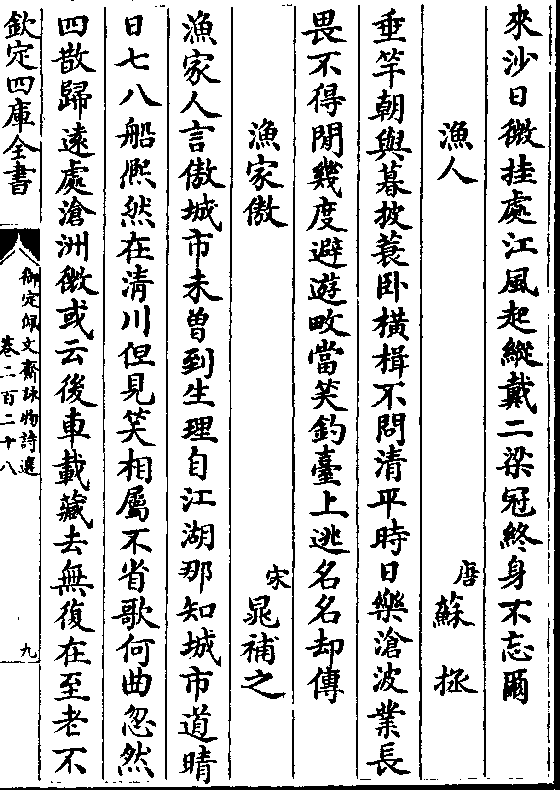 來沙日微挂處江風起縱戴二梁冠終身不忘爾
漁人
唐
蘇拯
垂竿朝與暮披蓑卧横楫不問清平時日樂滄波業長
畏不得閒幾度避遊畋當笑釣臺上逃名名却傳
漁家傲
宋
晁補之
漁家人言傲城市未曽到生理自江湖那知城市道晴
日七八船熈然在清川但見笑相屬不省歌何曲忽然
四散歸遠處滄洲微或云後車載藏去無復在至老不
欽定四庫全書
御定佩文齋詠物詩選
卷二百二十八
九